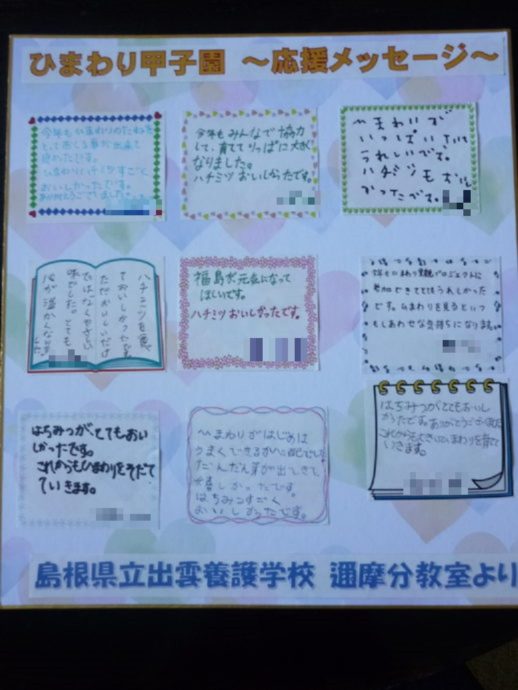 ひまわり甲子園 ～応援メッセージ～
今年もひまわりのたねを
とてもおいし
おいしかったです。
ありがとうございました。
今年もみんなで協力
して、育ててりっぱに大きく
なりました。
ハチミツおいしかったです。
いっぱいさいて
うれしいです。
ハチミツもおいし
かったです。
ハチミツを食べ
ておいしかったです。
ただおいしいだけ
ではなくやさしい
味でした。とても
心が温かくなりま
した。
福島が元気になって
ほしいです。
ハチミツおいしかったです。
今年もひまわり プロジェクトに
参加できてとてもうれしかった
です。ひまわりを見るといつ
もしあわせな気持ちになります。
はちみつがとてもおい
しかったです。
これからもひまわりをそだて
ていきます。
ひまわりがはじめは
うまくできるか心配でしたが
だんだん芽が出てきて
嬉しかったです
はちみつすごく
おいしかったです。
はちみつがとてもおいし
かったです。ありがとうございます。
これからもきれいなひまわりを育て
ていきます。
島根県立出雲養護学校 邇摩分教室より